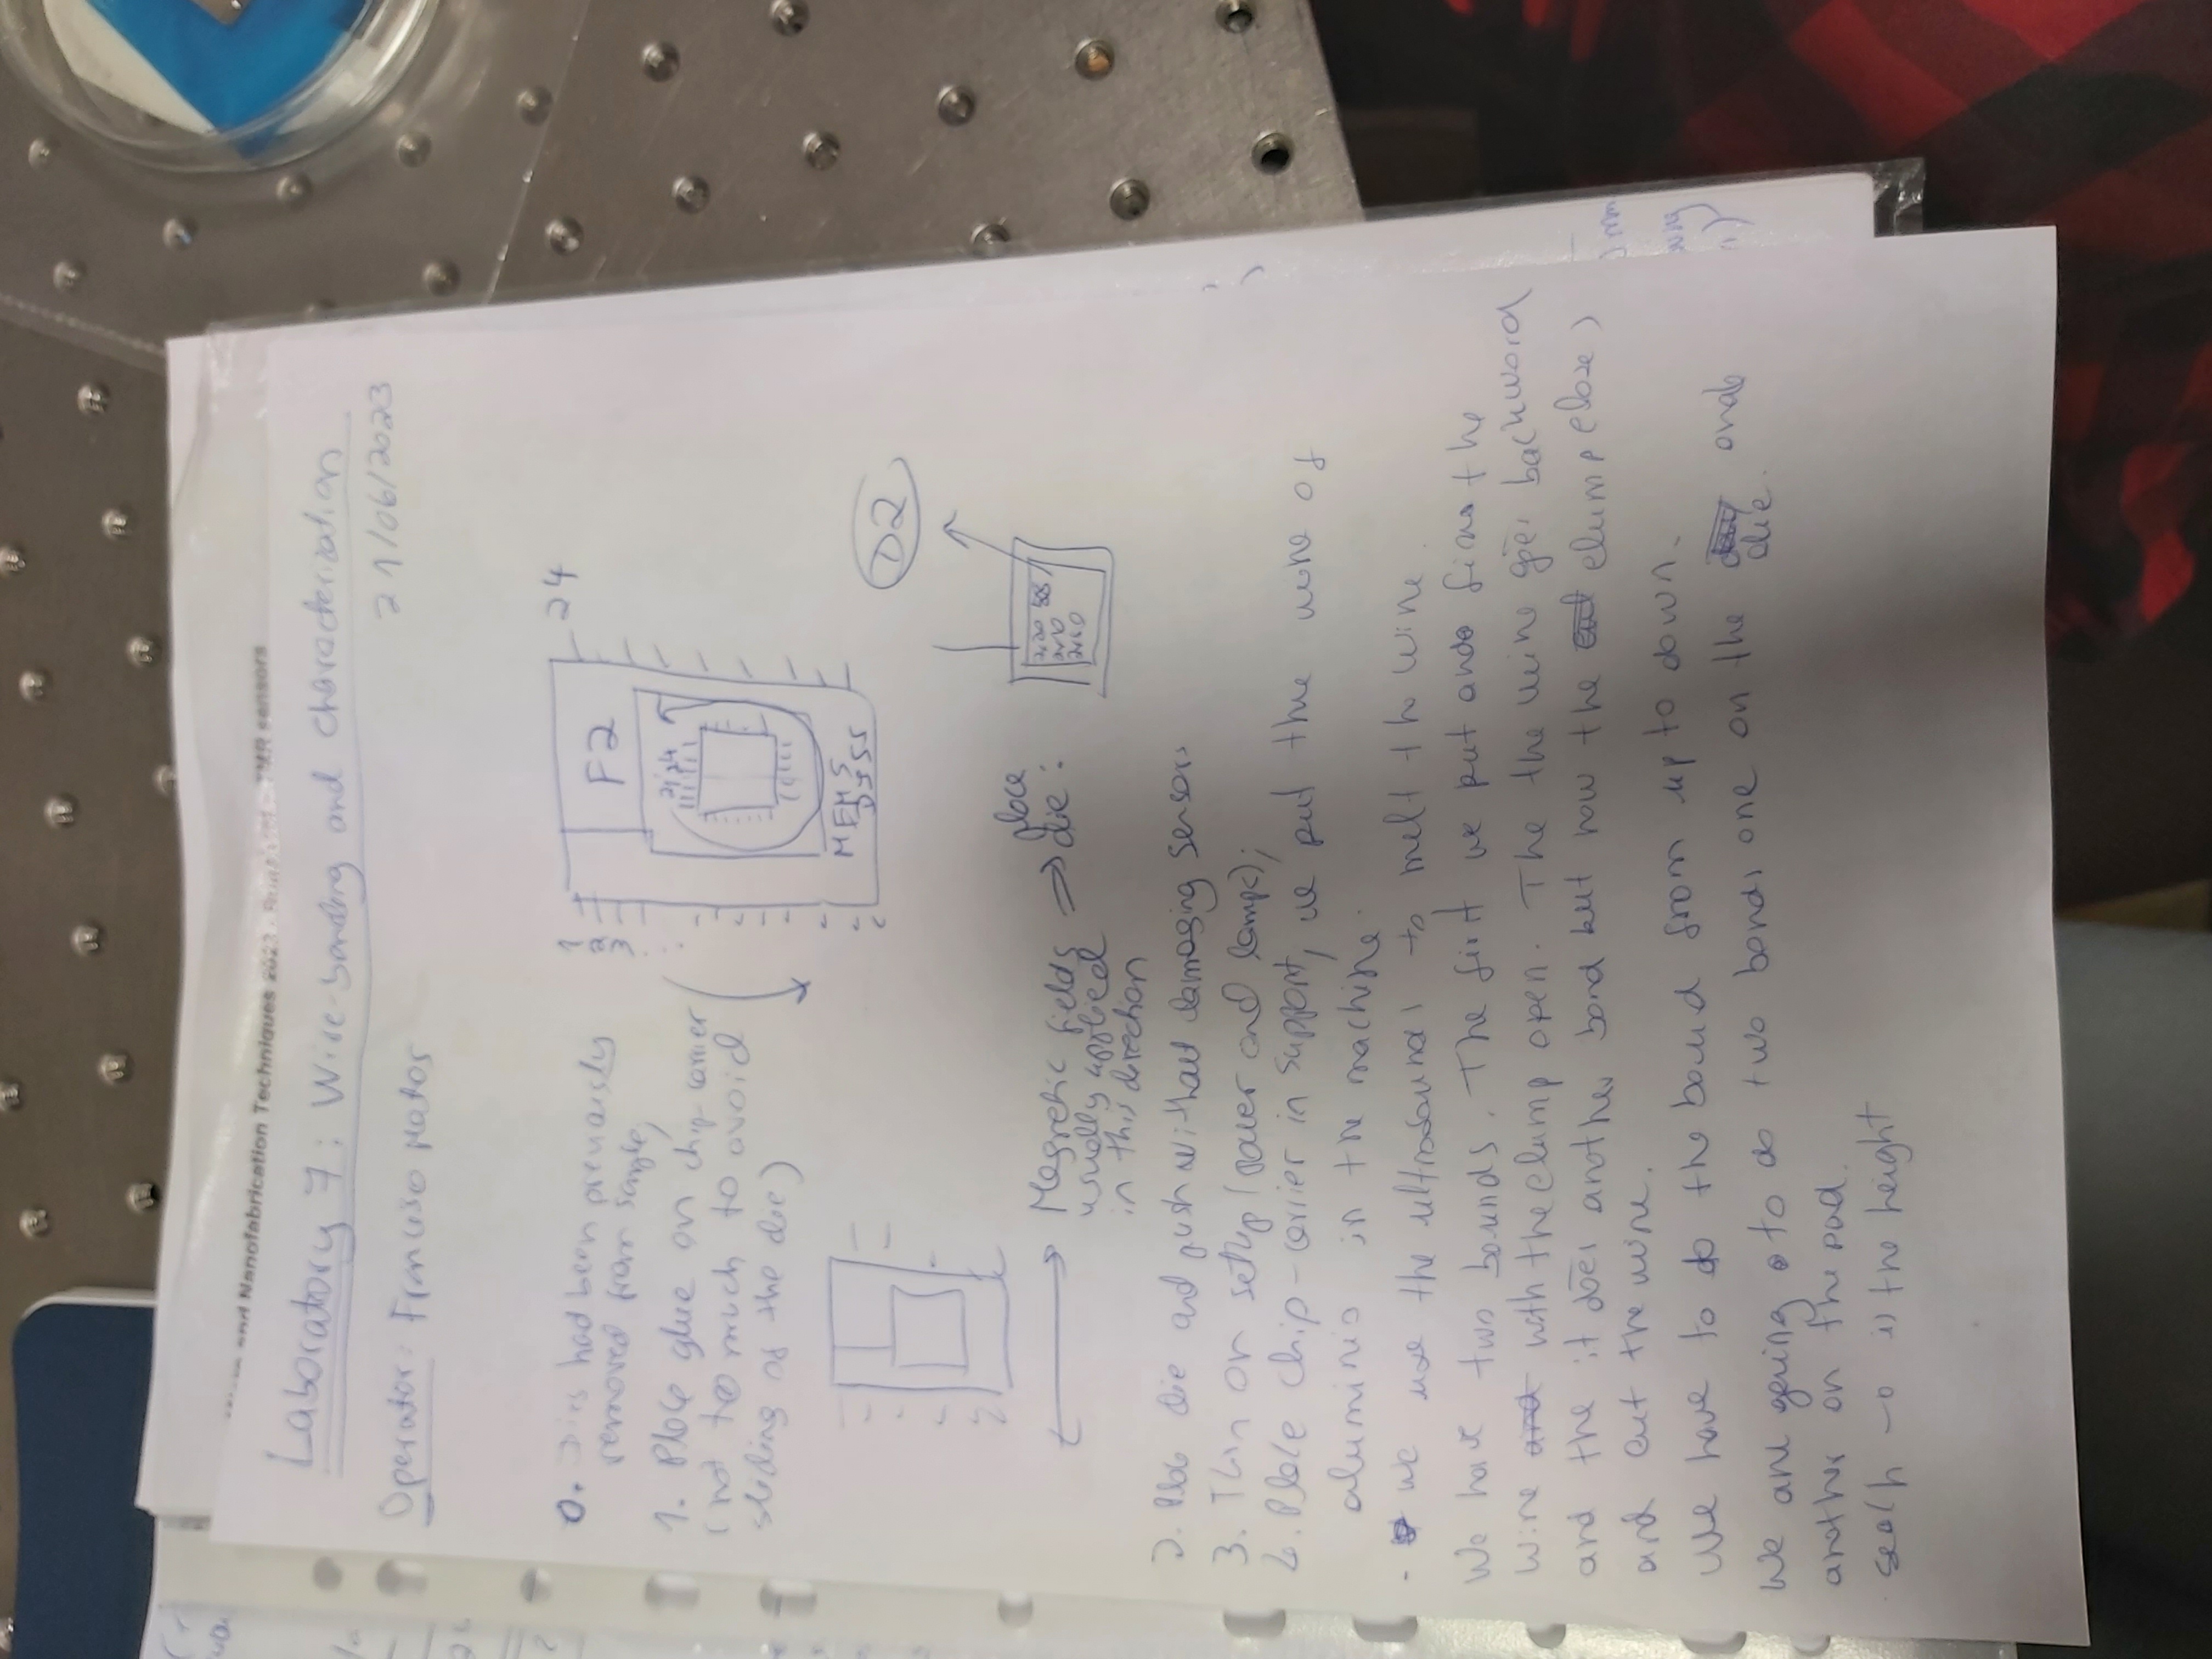 and Nanofabrication Techniques 2023 - TMR sensors
Laboratory 7: Wire-bonding and characterization
21/06/2023
Operator: Francisco Matos
0. Dies had been previously
removed from sample;
1. Place glue on chip-carrier
(not too much to avoid
sliding of the die)
1
2
3
24
F2
21 24
MEMS
D2
Magnetic fields
usually applied
in this direction
⇒ place
die:
2. Place die and push without damaging sensors
3. Turn on setup (power and lamp);
4. Place chip-carrier in support, we put the wire of
aluminio in the machine.
- we use the ultrasounds to melt the wire.
We have two bounds. The first we put and the
wire and with the clump open. The the wire goes backword
and the it does another bond but now the cut clump close)
and cut the wire.
We have to do the bound from up to down.
We are going to do two bonds one on the die. and
another on the pad.
seach → is the height